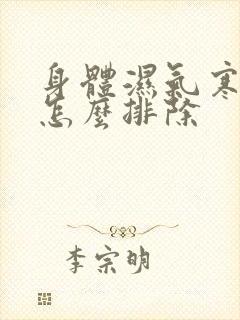 身體濕氣寒
怎麼排除
李宗明